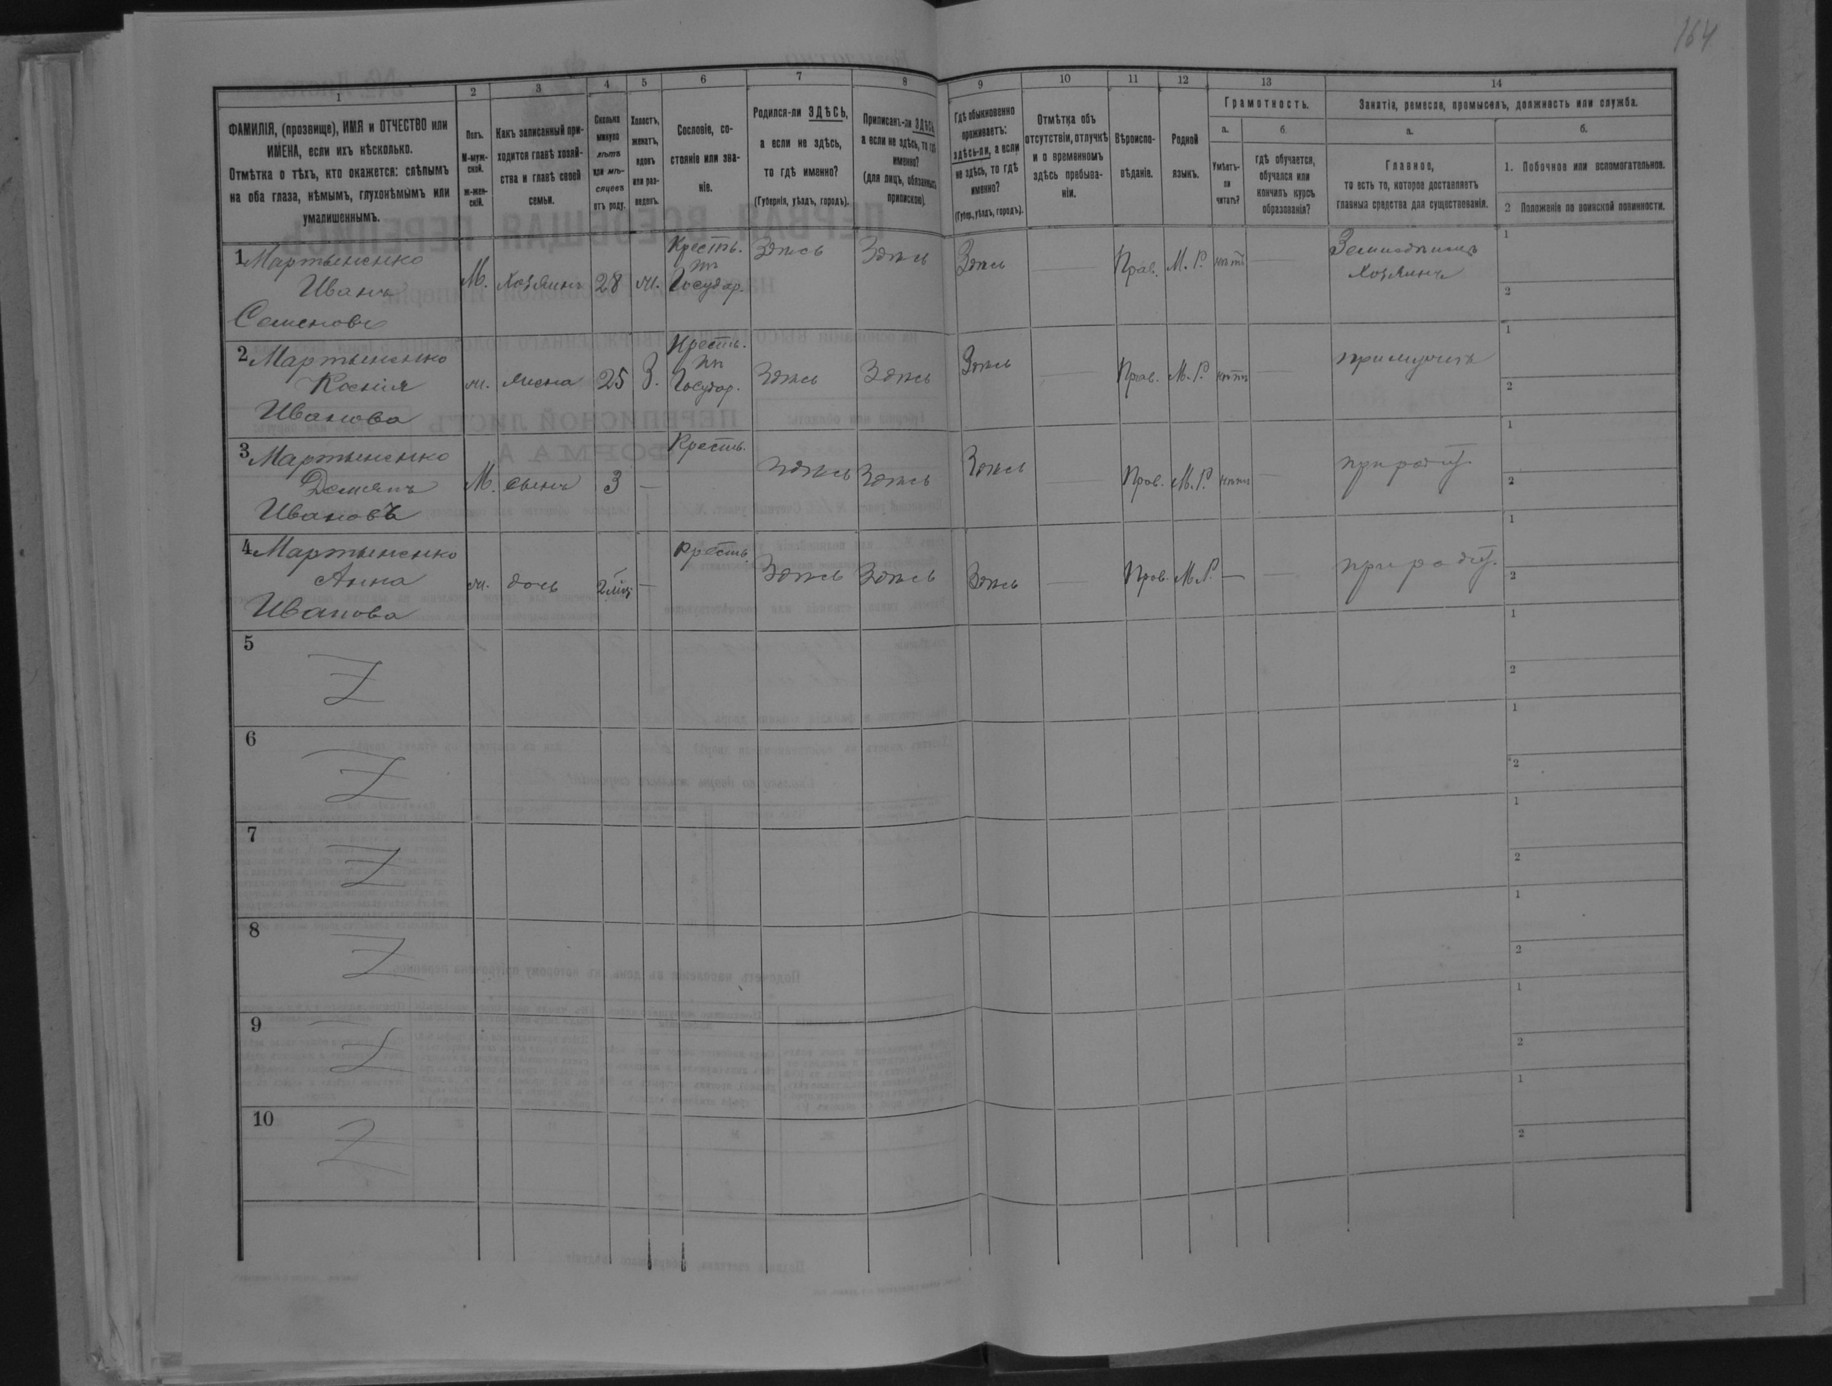 164
1 2 3 4 5 6 7 8 9 10 11 12 13 14
ФАМИЛІЯ, (прозвище), ИМЯ и ОТЧЕСТВО или
ИМЕНА, если ихъ нѣсколько.
Отмѣтка о тѣхъ, кто окажется: слѣпымъ
на оба глаза, нѣмымъ, глухонѣмымъ или
умалишеннымъ.
Полъ.
М-муж-
ской.
ж-жен-
скій.
Какъ записанный при-
ходится главѣ хозяй-
ства и главѣ своей
семьи.
Сколько
минуло
лѣтъ
или мѣ-
сяцевъ
отъ роду.
Холостъ,
женатъ,
вдовъ
или раз-
веденъ.
Сословіе, со-
стояніе или зва-
ніе.
Родился-ли ЗДѢСЬ,
а если не здѣсь,
то гдѣ именно?
(Губернія, уѣздъ, городъ).
Приписанъ-ли ЗДѢСЬ,
а если не здѣсь, то гдѣ
именно?
(для лицъ, обязанныхъ
припиской)
Гдѣ обыкновенно
проживаетъ:
здѣсь-ли, а если
не здѣсь, то гдѣ
именно?
(Губер., уѣздъ, городъ).
Отмѣтка объ
отсутствіи, отлучкѣ
и о временномъ
здѣсь пребыва-
ніи.
Вѣроиспо-
вѣданіе.
Родной
языкъ.
Грамотность.
а. б.
Умѣетъ-
ли
читать?
гдѣ обучается,
обучался или
кончилъ курсъ
образованія?
Занятія, ремесло, промыселъ, должность или служба.
а. б.
Главное,
то есть то, которое доставляетъ
главныя средства для существованія.
1. Побочное или вспомогательное.
2 Положеніе по воинской повинности.
1 Мартыненко
Иванъ
Семеновъ
М. Хозяинъ 28 ж.
Кресть.
Государ.
Здѣсь Здѣсь Здѣсь — Прав. М. Р. нѣтъ —
Хозяинъ
1
2
2 Мартыненко
Ксенія
Иванова
ж. жена 25 З.
Кресть.
Государ.
Здѣсь Здѣсь Здѣсь — Прав. М. Р. нѣтъ —
при мужѣ
1
2
3 Мартыненко
Демянъ
Ивановъ
М. сынъ 3 —
Кресть.
Здѣсь Здѣсь Здѣсь — Прав. М. Р. нѣтъ —
при род.
1
2
4 Мартыненко
Анна
Иванова
ж. дочь 2 мѣс —
Кресть.
Здѣсь Здѣсь Здѣсь — Прав. М. Р. — —
при род.
1
2
5
1
2
6
1
2
7
1
2
8
1
2
9
1
2
10
1
2